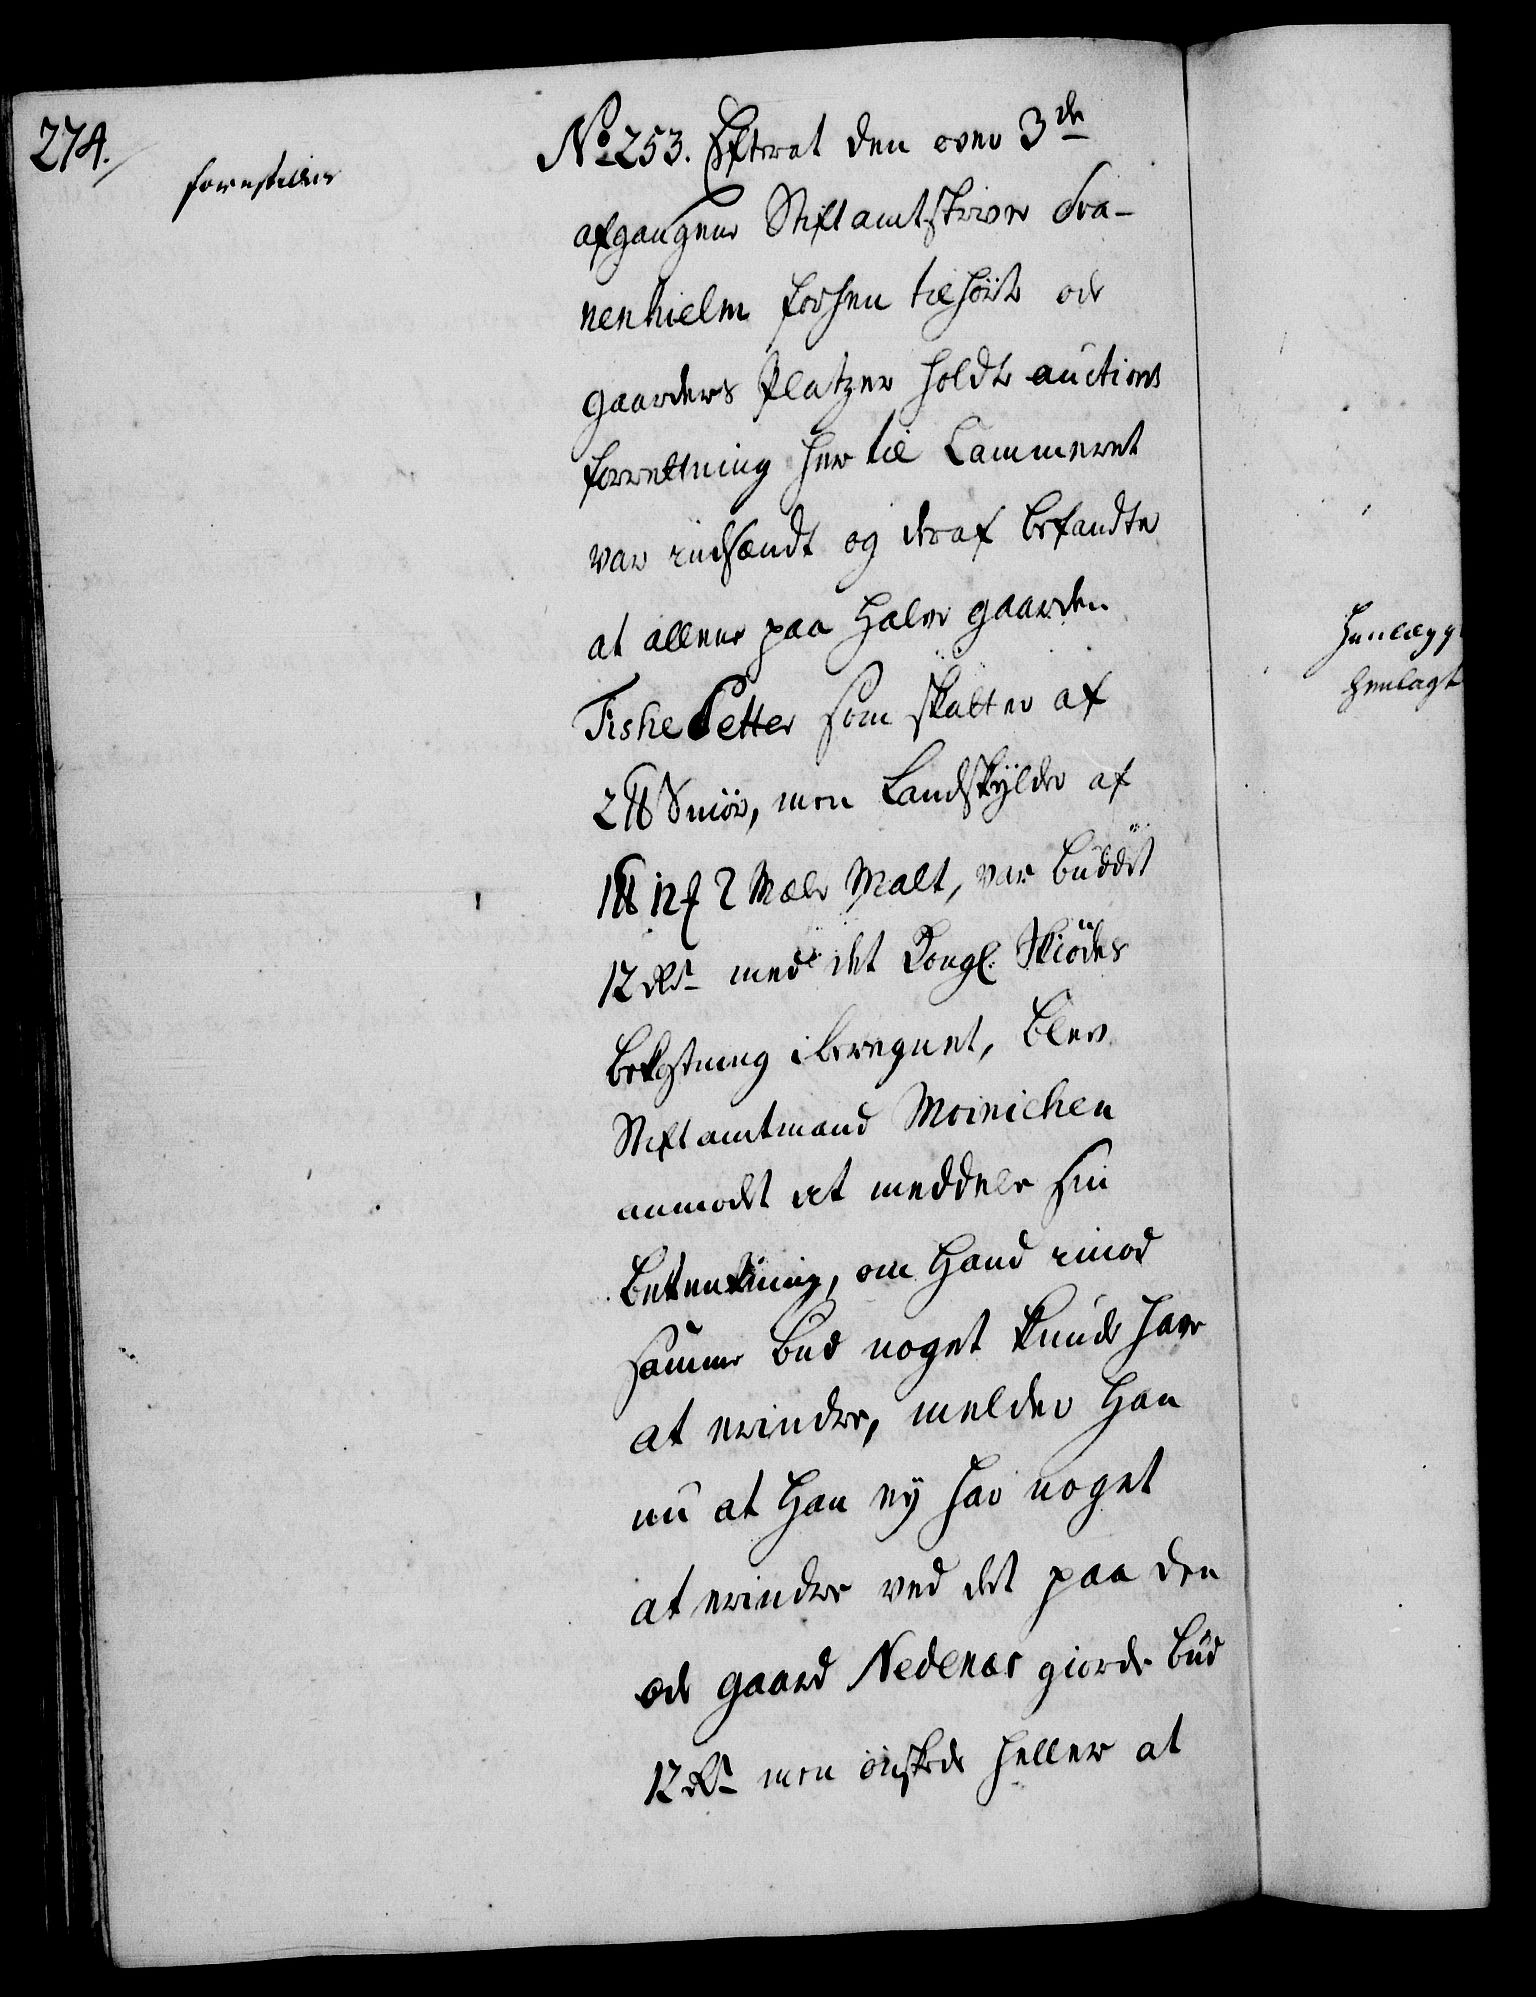 274.
forestilles
No. 253. Efterat den over 3de
afgangene Stiftamtskriver Dra-
nenhielm forhen tilhörte öde
gaarders Platzer holdte auctions
forrettning her til Cammeret
var indsændt og deraf befandte
at allene paa halve gaarden
Fiske Setter som skatter af
2 Smör, men Landskylder af
12 2 Mæle Malt, var büddet
12 Rd med det Kongl. Skiödes
bekostning iberegnet, blev
Stiftamtmand Moinichen
anmodet at meddele sin
betenkning, om Hand imod
samme bud noget kunde have
at erindre, melder Han
nu at Han ey har noget
at erindre ved det paa den
öde gaard Nedenæs giorde bud
12 Rd men önskede heller at
Henlægg
henlagt